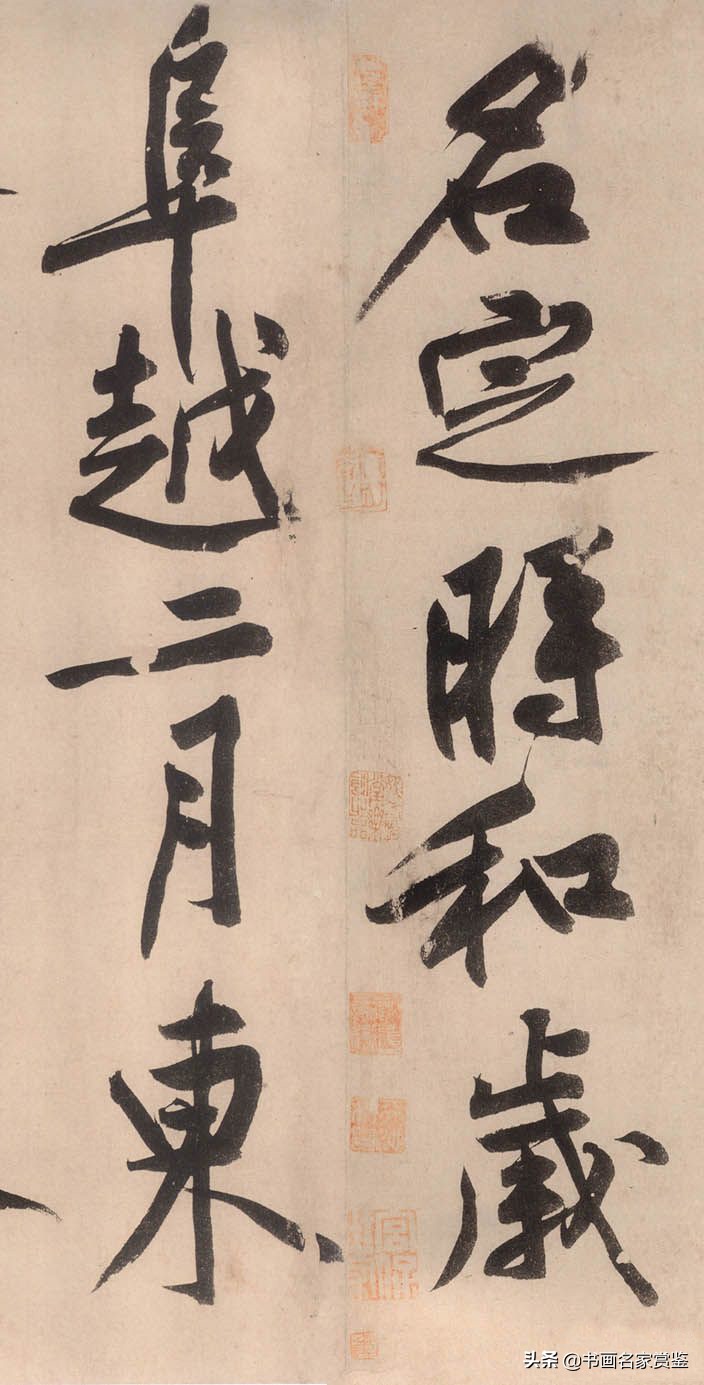 名定時和歲
阜越二月東
头条 @书画名家赏鉴